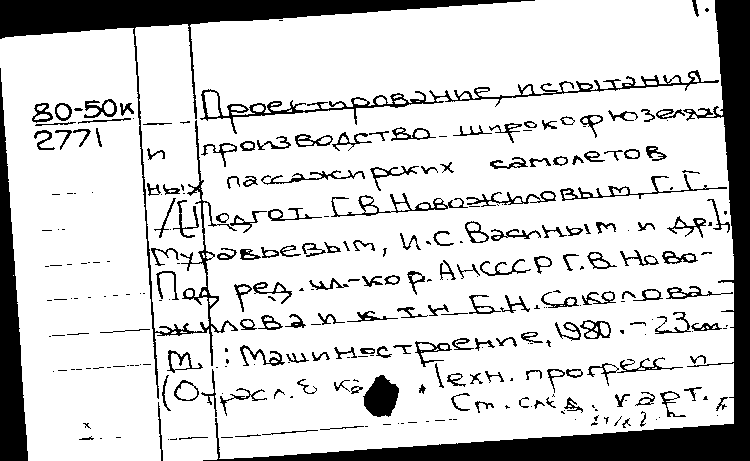 80-50к
2771
Проектирование, испытания
и производство широкофюзеляж
ных пассажирских самолетов
/[Подгот. Г.В. Новожиловым, Г.Г.
Муравьевым, И.С. Васиным и др.];
Под ред. чл.-кор. АНСССР Г.В. Ново-
жилова и к.т.н Б.Н. Соколова. -
М. : Машиностроение, 1980. - 23 см.
(Отрасл. б Техн. прогресс и
См. след. карт.